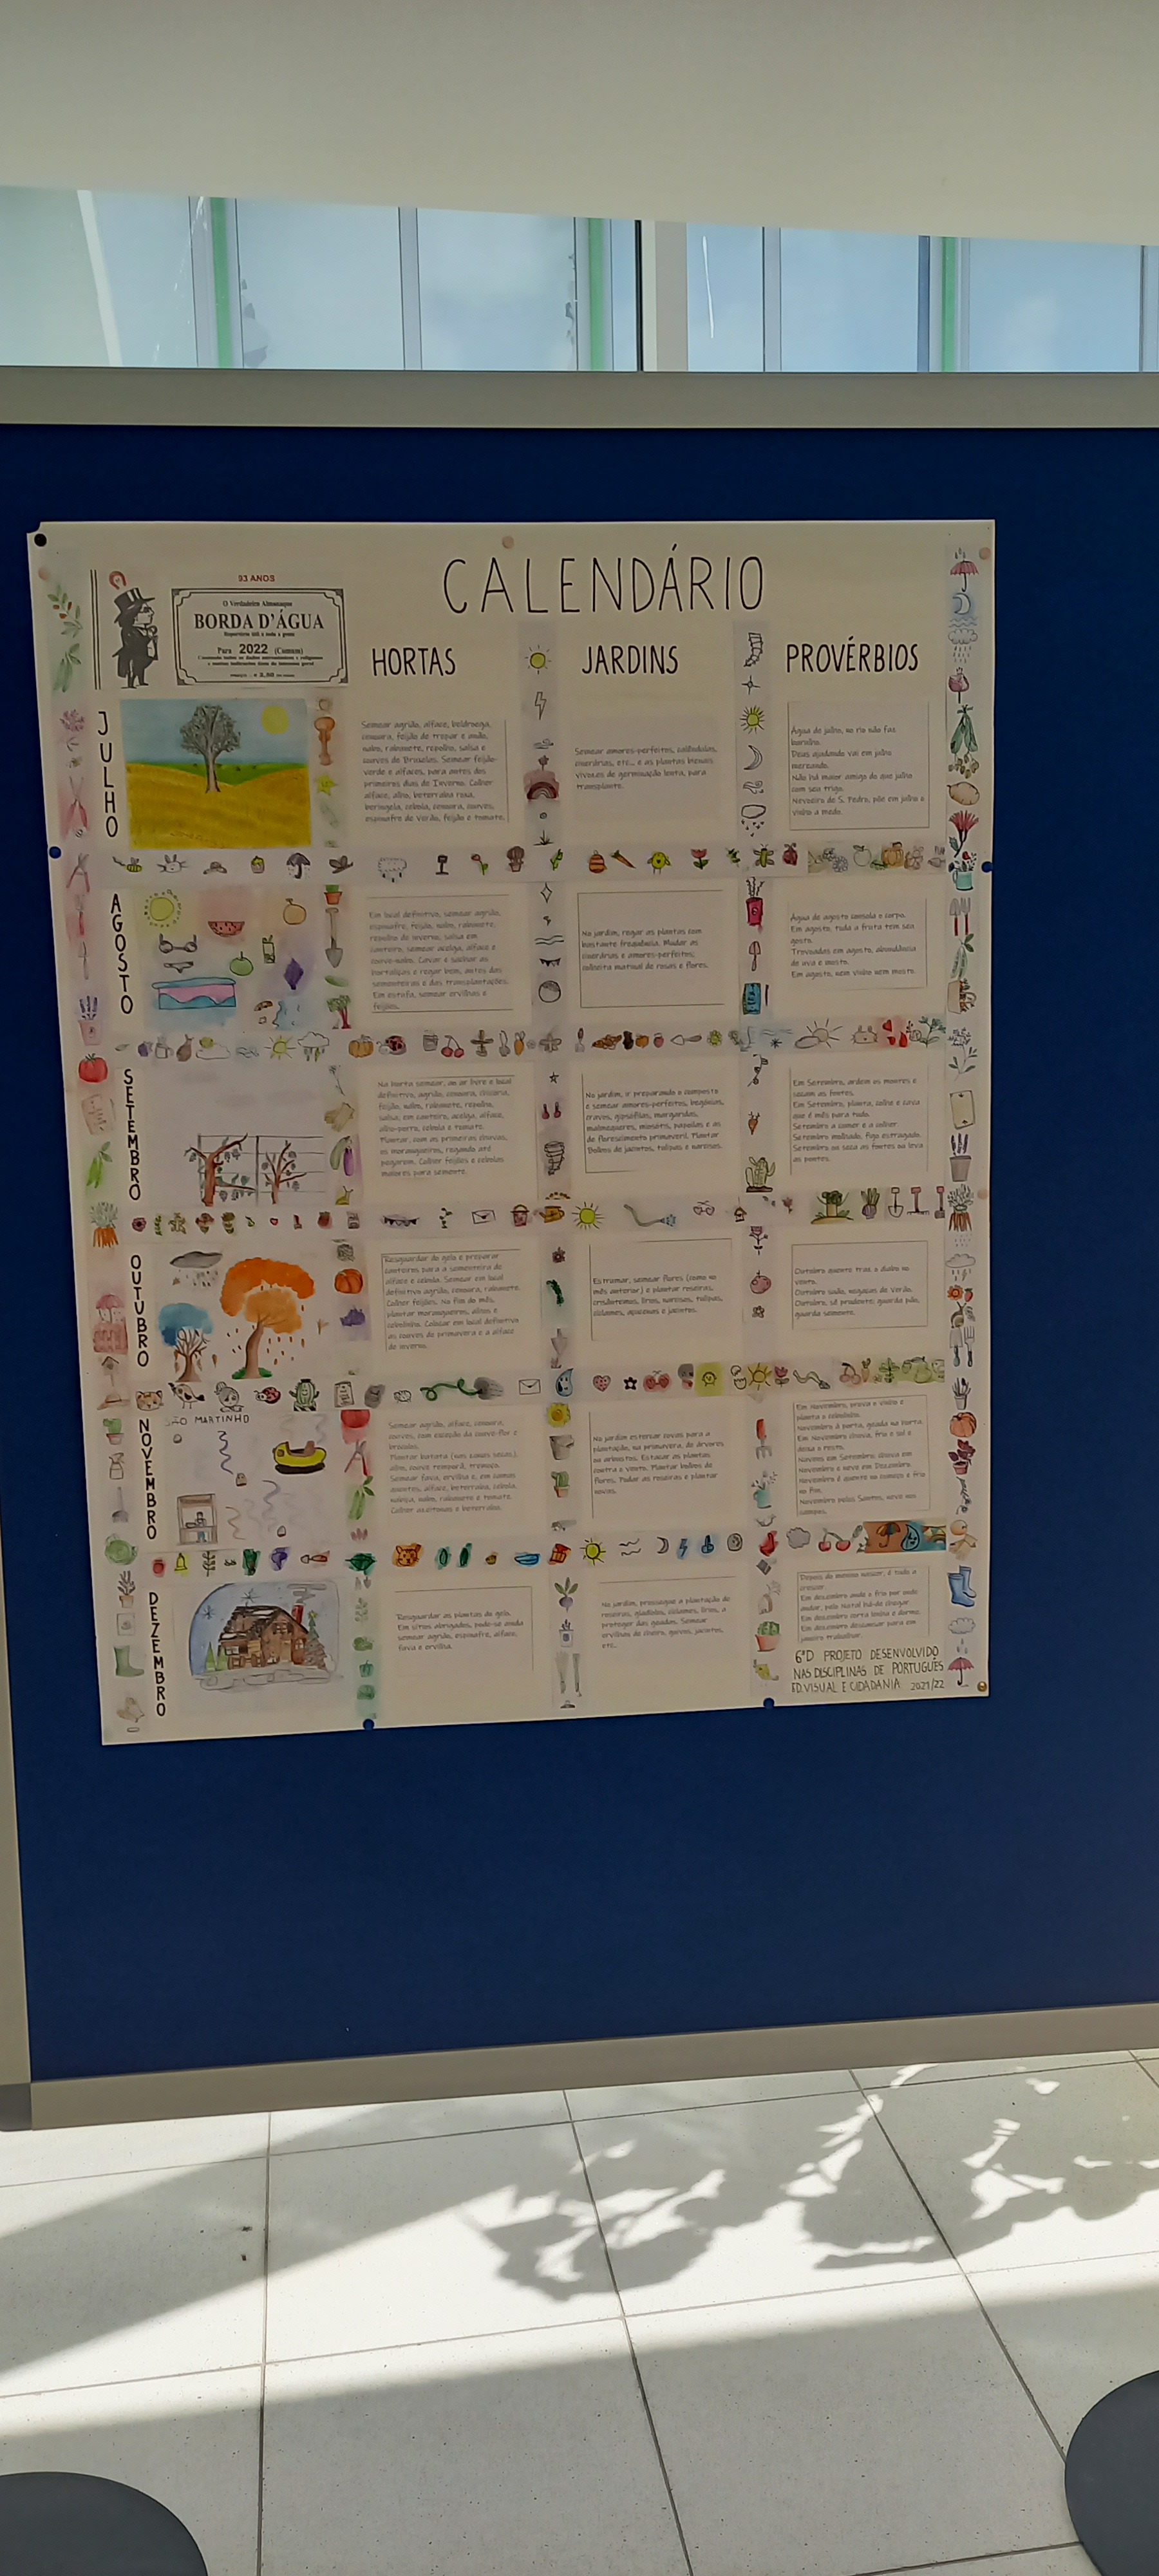 CALENDÁRIO
93 ANOS
O Verdadeiro Almanaque
BORDA D'ÁGUA
Reportório útil a toda a gente
Para 2022 (Comum)
HORTAS
JARDINS
PROVÉRBIOS
JULHO
Semear agrião, alface, beldroega,
cenoura, feijão de trepar e anão,
nabo, rabanete, repolho, salsa e
couves de Bruxelas. Semear feijão-
verde e alfaces, para antes dos
primeiros dias de Inverno. Colher
alface, alho, beterraba roxa,
beringela, cebola, cenoura, couves,
espinafre de Verão, feijão e tomate.
Semear amores-perfeitos, calêndulas,
cinerárias, etc... e as plantas bienais
vivazes de germinação lenta, para
transplante.
Água de julho, no rio não faz
barulho.
Deus ajudando vai em julho
mercando.
Não há maior amigo do que julho
com seu trigo.
Nevoeiro de S. Pedro, põe em julho o
vinho a medo.
AGOSTO
Em local definitivo, semear agrião,
espinafre, feijão, nabo, rabanete,
repolho de inverno, salsa em
canteiro, semear acelga, alface e
couve-nabo. Cavar e sachar as
hortaliças e regar bem, antes das
sementeiras e das transplantações.
Em estufa, semear ervilhas e
feijões.
No jardim, regar as plantas com
bastante frequência. Mudar as
cinerárias e amores-perfeitos;
colheita matinal de rosas e flores.
Água de agosto consola o corpo.
Em agosto, toda a fruta tem seu
gosto.
Trovoadas em agosto, abundância
de uva e mosto.
Em agosto, nem vinho nem mosto.
SETEMBRO
Na horta semear, ao ar livre e local
definitivo, agrião, cenoura, chicória,
feijão, nabo, rabanete, repolho,
salsa, em canteiro, acelga, alface,
alho-porro, cebola e tomate.
Plantar, com as primeiras chuvas,
os morangueiros, regando até
pegarem. Colher feijões e cebolas
maiores para semente.
No jardim, ir preparando o composto
e semear amores-perfeitos, begónias,
cravos, gipsófilas, margaridas,
malmequeres, miosótis, papoilas e as
de florescimento primaveril. Plantar
bolbos de jacintos, tulipas e narcisos.
Em Setembro, ardem os montes e
secam as fontes.
Em Setembro, planta, colhe e cava
que é mês para tudo.
Setembro a comer e a colher.
Setembro molhado, figo estragado.
Setembro ou seca as fontes ou leva
as pontes.
OUTUBRO
Resguardar do gelo e preparar
canteiros para a sementeira de
alface e cebola. Semear em local
definitivo agrião, cenoura, rabanete.
Colher feijões. No fim do mês,
plantar morangueiros, alhos e
cebolinho. Colocar em local definitivo
as couves de primavera e a alface
de inverno.
Estrumar, semear flores (como no
mês anterior) e plantar roseiras,
crisântemos, lírios, narcisos, tulipas,
ciclames, açucenas e jacintos.
Outubro quente traz o diabo no
ventre.
Outubro suão, negaças de Verão.
Outubro, sê prudente: guarda pão,
guarda semente.
NOVEMBRO
SÃO MARTINHO
Semear agrião, alface, cenoura,
couves, com exceção da couve-flor e
brócolos.
Plantar batata (nas zonas secas),
alho, couve temporã, tremoço.
Semear fava, ervilha e, em camas
quentes, alface, beterraba, cebola,
nabiça, nabo, rabanete e tomate.
Colher azeitonas e beterraba.
No jardim estercar covas para a
plantação, na primavera, de árvores
ou arbustos. Estacar as plantas
contra o vento. Plantar bolbos de
flores. Podar as roseiras e plantar
novas.
Em Novembro, prova o vinho e
planta o cebolinho.
Novembro à porta, geada na horta.
Em Novembro chuva, frio e sol e
deixa o resto.
Novembro é quente no começo e frio
no fim.
Novembro pelos Santos, neve nos
campos.
DEZEMBRO
Resguardar as plantas do gelo.
Em sítios abrigados, pode-se ainda
semear agrião, espinafre, alface,
fava e ervilha.
No jardim, prossegue a plantação de
roseiras, gladíolos, ciclames, lírios, a
proteger das geadas. Semear
ervilhas de cheiro, goivos, jacintos,
etc...
Depois do menino nascer, é tudo a
crescer.
Em dezembro anda o frio por onde
andar, pelo Natal há-de chegar.
Em dezembro corta lenha e dorme.
Em dezembro descansar para em
janeiro trabalhar.
6ºD PROJETO DESENVOLVIDO
NAS DISCIPLINAS DE PORTUGUÊS
ED.VISUAL E CIDADANIA 2021/22